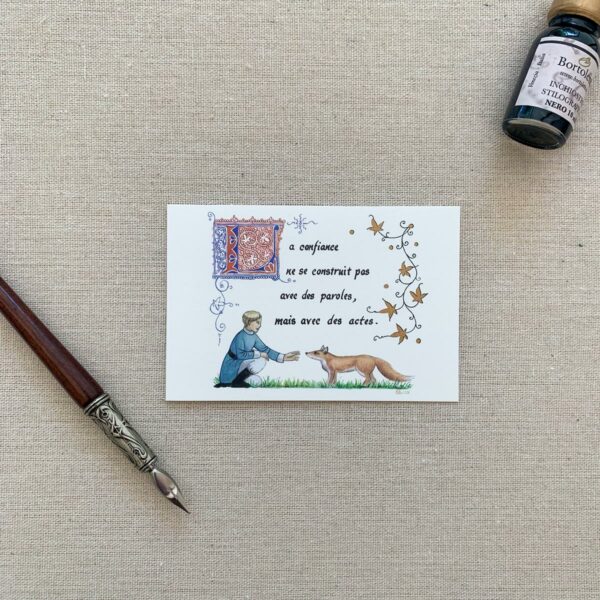 La confiance
ne se construit pas
avec des paroles,
mais avec des actes.
Bortole
Venezia - Italia
INCHIOS
STILOGRAF
NERO